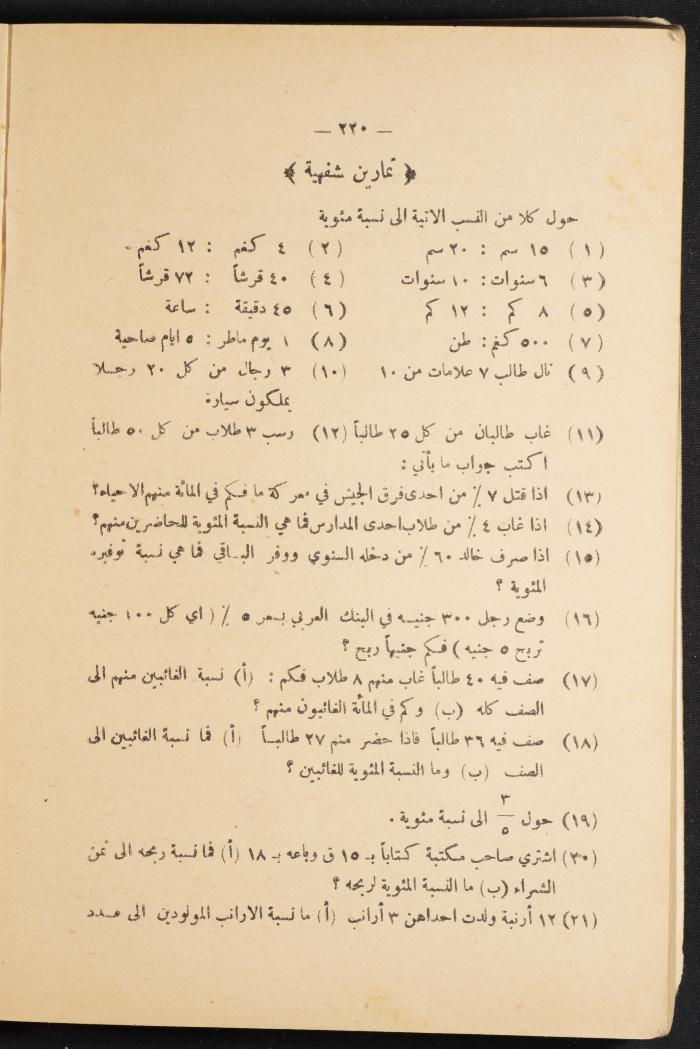 — ٢٢٠ —
﴿ تمارين شفهية ﴾
حول كلا من النسب الاتية الى نسبة مئوية
(١) ١٥ سم : ٢٠ سم (٢) ٤ كغم : ١٢ كغم .
(٣) ٦ سنوات : ١٠ سنوات (٤) ٤٠ قرشاً : ٧٢ قرشاً
(٥) ٨ كم : ١٢ كم (٦) ٤٥ دقيقة : ساعة
(٧) ٥٠٠ كغم : طن (٨) ١ يوم ماطر : ٥ ايام صاحية
(٩) نال طالب ٧ علامات من ١٠ (١٠) ٣ رجال من كل ٢٠ رجلا
يملكون سيارة
(١١) غاب طالبان من كل ٢٥ طالباً (١٢) رسب ٣ طلاب من كل ٥٠ طالباً
اكتب جواب ما يأتي :
(١٣) اذا قتل ٧ ٪ من احدى فرق الجيش في معركة ما فكم في المائة منهم الاحياء؟
(١٤) اذا غاب ٤ ٪ من طلاب احدى المدارس فما هي النسبة المئوية للحاضرين منهم؟
(١٥) اذا صرف خالد ٦٠ ٪ من دخله السنوي ووفر الباقي فما هي نسبة توفيره
المئوية ؟
(١٦) وضع رجل ٣٠٠ جنيه في البنك العربي بسعر ٥ ٪ ( اي كل ١٠٠ جنيه
تربح ٥ جنيه ) فكم جنيهاً ربح ؟
(١٧) صف فيه ٤٠ طالباً غاب منهم ٨ طلاب فكم : (أ) نسبة الغائبين منهم الى
الصف كله (ب) وكم في المائة الغائبون منهم ؟
(١٨) صف فيه ٣٦ طالباً فاذا حضر منهم ٢٧ طالباً (أ) فما نسبة الغائبين الى
الصف (ب) وما النسبة المئوية للغائبين ؟
(١٩) حول ٣/٥ الى نسبة مئوية .
(٣٠) اشتري صاحب مكتبة كتاباً بـ ١٥ ق وباعه بـ ١٨ (أ) فما نسبة ربحه الى ثمن
الشراء (ب) ما النسبة المئوية لربحه ؟
(٢١) ١٢ أرنبة ولدت احداهن ٣ أرانب (أ) ما نسبة الارانب المولودين الى عدد